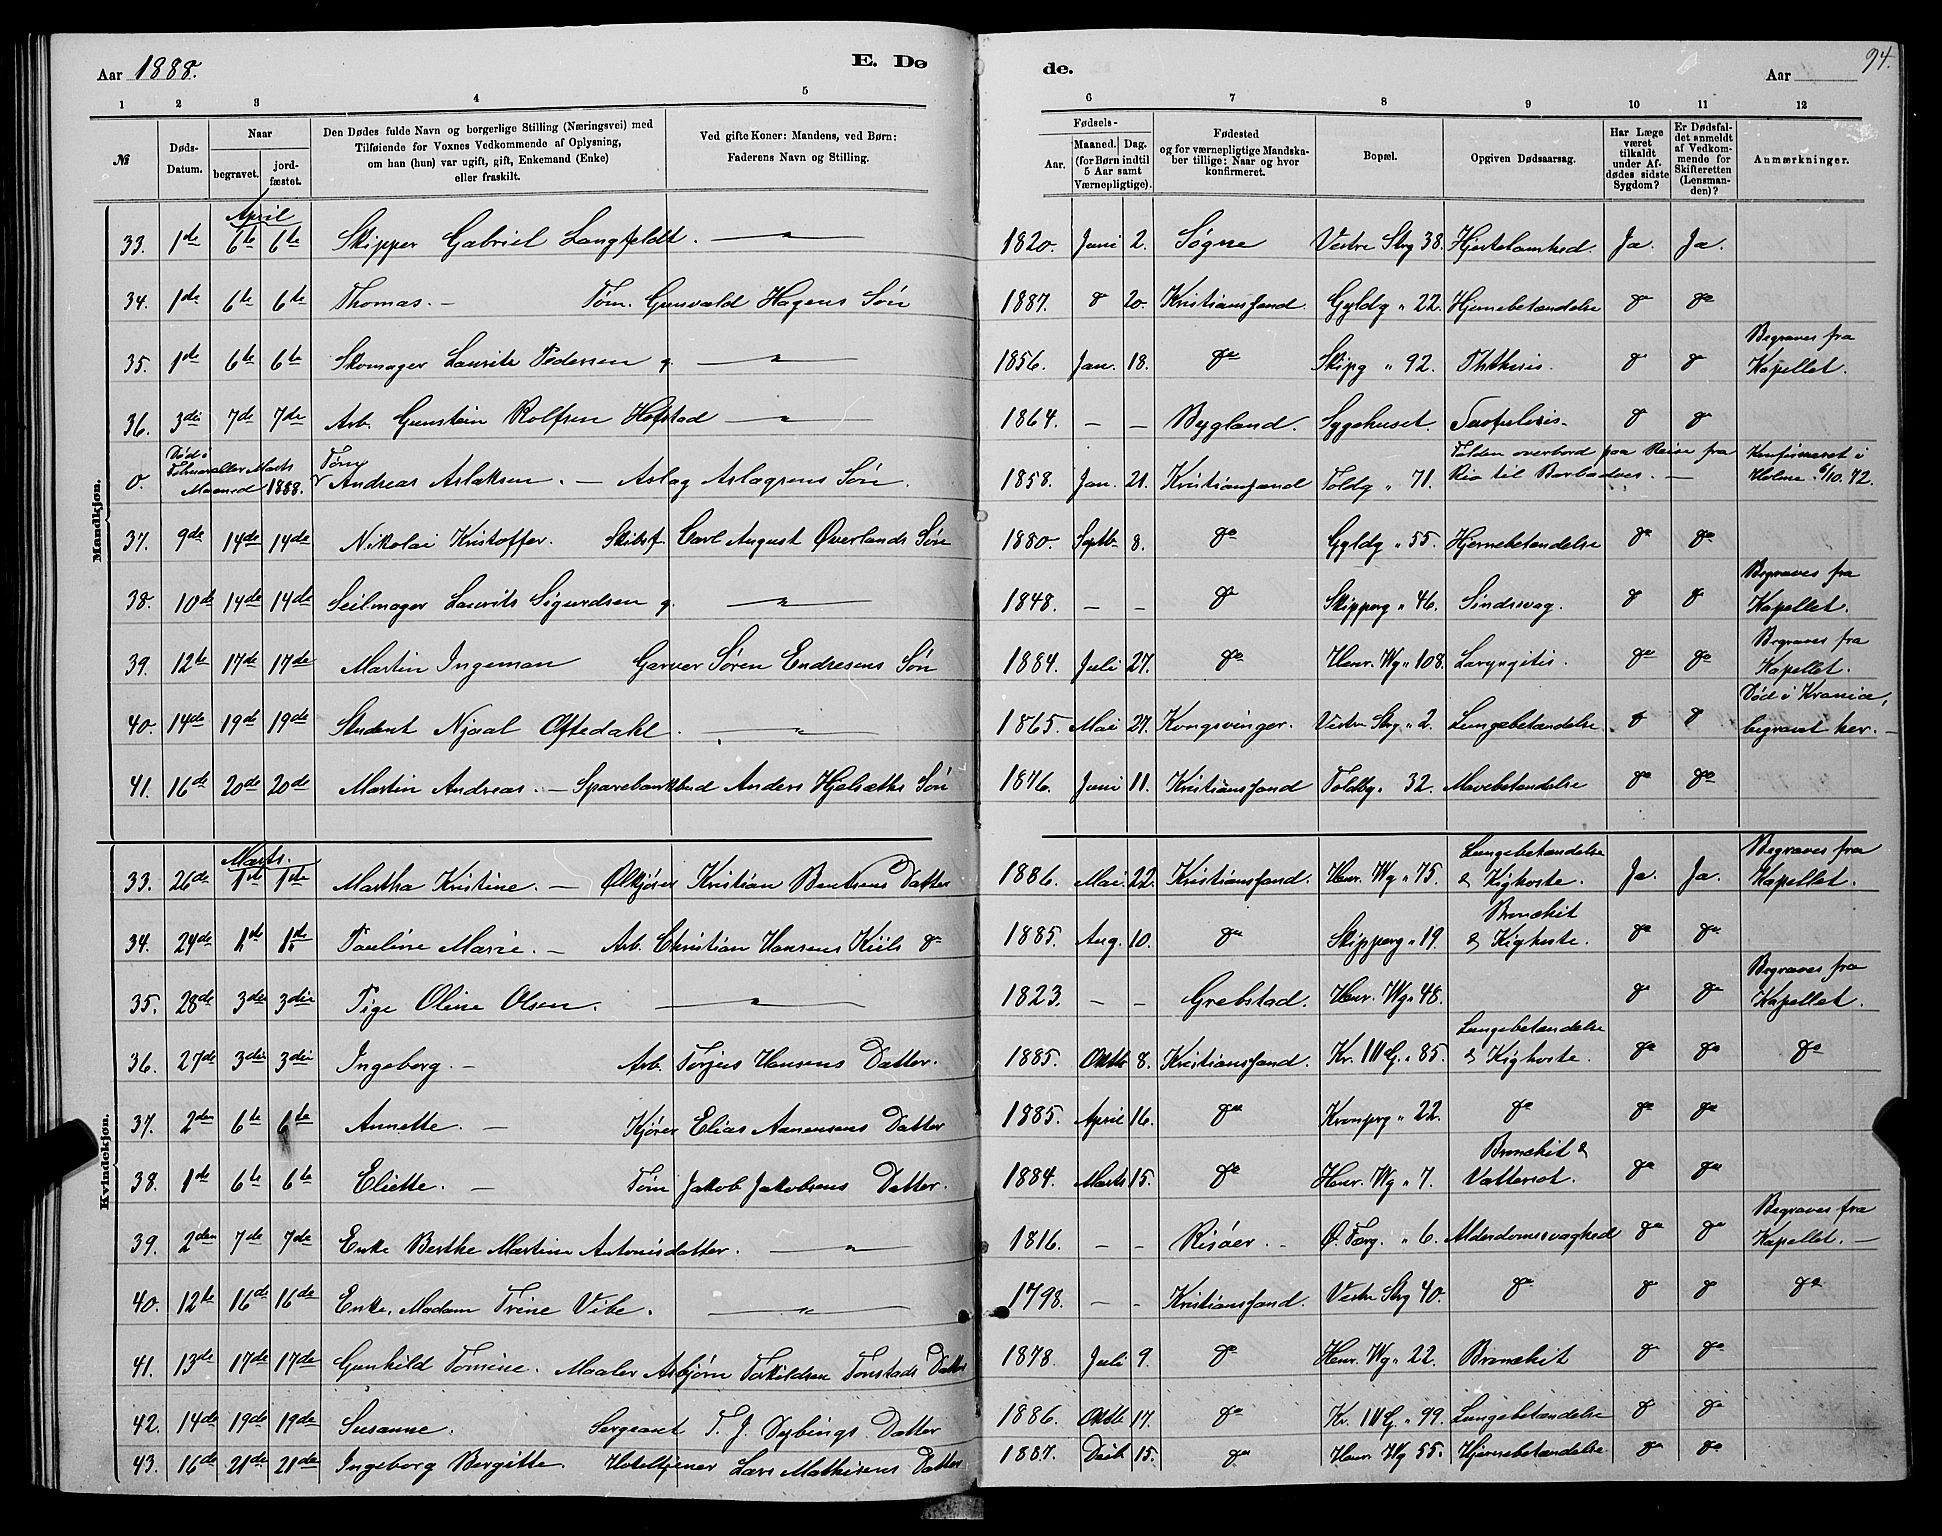 Aar 1888. E. Dø de. Aar 94.
1 2 3 4 5 6 7 8 9 10 11 12
№ Døds-Datum. Naar begravet. jordfæstet. Den Dødes fulde Navn og borgerlige Stilling (Næringsvei) med Tilføiende for Voxnes Vedkommende af Oplysning, om han (hun) var ugift, gift, Enkemand (Enke) eller fraskilt. Ved gifte Koner: Mandens, ved Børn: Faderens Navn og Stilling. Fødsels- Aar. Maaned. Dag. (for Børn indtil 5 Aar samt Værnepligtige). Fødested og for værnepligtige Mandskaber tillige: Naar og hvor konfirmeret. Bopæl. Opgiven Dødsaarsag. Har Læge været tilkaldt under Afdødes sidste Sygdom? Er Dødsfaldet anmeldt af Vedkommende for Skifteretten (Lensmanden)? Anmærkninger.
Mandkjøn.
April
33. 1de 6te 6te Skipper Gabriel Langfeldt. — " — 1820. Juni 2. Søgne Vestre Strg 38. Hjertelamhed. Ja. Ja.
34. 1de 6te 6te Thomas. — Tøm. Gunvald Hagens Søn 1887. do 20. Kristianssand Gyldg " 22. Hjernebetændelse do do
35. 1de 6te 6te Skomager Laurits Pedersen g. — " — 1856. Jan. 18. do Skipg " 92. Phthisis. do do Begraves fra Kapellet.
36. 3die 7de 7de Arb. Gunstein Rolfsen Hofstad — " — 1864. — — Bygland. Sygehuset. do do
0. Død i Februar eller Marts Maaned 1888. Tøm Andreas Aslaksen. — Aslag Aslagsens Søn. 1858. Jan. 21. Kristianssand Toldg " 71. Falden overbord paa Reise fra Rio til Barbadoes. — Konfirmeret i Holme 6/10.72.
37. 9de 14de 14de Nikolai Kristoffer. Skibsf. Carl August Øverlands Søn 1880. Septb. 8. do Gyldg " 55. Hjernebetændelse do do
38. 10de 14de 14de Seilmager Laurits Sigurdsen g. — " — 1848. — — do Skipperg " 46. Sindssvag. do do Begraves fra Kapellet.
39. 12te 17de 17de Martin Ingeman Garver Søren Endresens Søn 1884. Juli 27. do Henr. Wg " 108. Laryngitis. do do Begraves fra Kapellet.
40. 14de 19de 19de Student Njaal Oftedahl. — " — 1865. Mai 27. Kongsvinger. Vestre Strg " 2. Lungebetændelse. do do Død i Krania, begravet her. —
41. 16de 20de 20de Martin Andreas. — Sparebankbud Anders Hjelseths Søn 1876. Juni 11. Kristianssand Toldbg. 32. Mavebetændelse do do
Kvindekjøn.
Marts.
33. 26de 1ste 1ste Martha Kristine. — Ølkjører Kristian Bentsens Datter 1886. Mai 22. Kristianssand. Henr. Wg " 75. Lungebetændelse & Kighoste. Ja. Ja. Begraves fra Kapellet.
34. 24de 1ste Pauline Marie. — Arb. Christian Hansens Kiils do 1885. Aug. 10. do Skipperg " 19. Bronchit & Kighoste. do do
35. 28de 3die 3die Pige Oline Olsen. — " — 1823. — — Grebstad. Henr. Wg " 48. do do Begraves fra Kapellet.
36. 27de 3die 3die Ingeborg. — Arb. Torjus Hansens Datter. 1885. Oktb 8. Kristianssand. Kr. IV G. " 85. Lungebetændelse & Kighoste. do do do
37. 2den 6te 6te Annette. — Kjører Elias Aanensens Datter 1885. April 16. do Kronprg " 22. do do do
38. 1de 6te 6te Eliette. — Tøm Jakob Jakobsens Datter. 1884. Marts 15. do Henr. Wg " 7. Bronchit & Vattersot. do do
39. 2den 7de 7de Enke Berthe Martine Antonisdatter. — " — 1816. — — Risøer. — Ø. " 6. Alderdomssvaghed do do Begraves fra Kapellet. —
40. 12te 16de 16de Enke, Madam Trine Vibe. — " — 1798. — — Kristianssand. Vestre Strg 40. do do do do
41. 13de 17de 17de Gunhild Tomine. Maaler Asbjørn Torkildsen Tonstads Datter 1878. Juli 9. do Henr. Wg " 22. Bronchit do do
42. 14de 19de 19de Susanne. Sergeant T. J. Dybings Datter 1886. Oktb 17. do Kr. IV G. " 99. Lungebetændelse do do
43. 16de 21de 21de Ingeborg Bergitte. Hoteltjener Lars Mathisens Datter 1887. Decb 15. do Henr. Wg 55. Hjernebetændelse do do